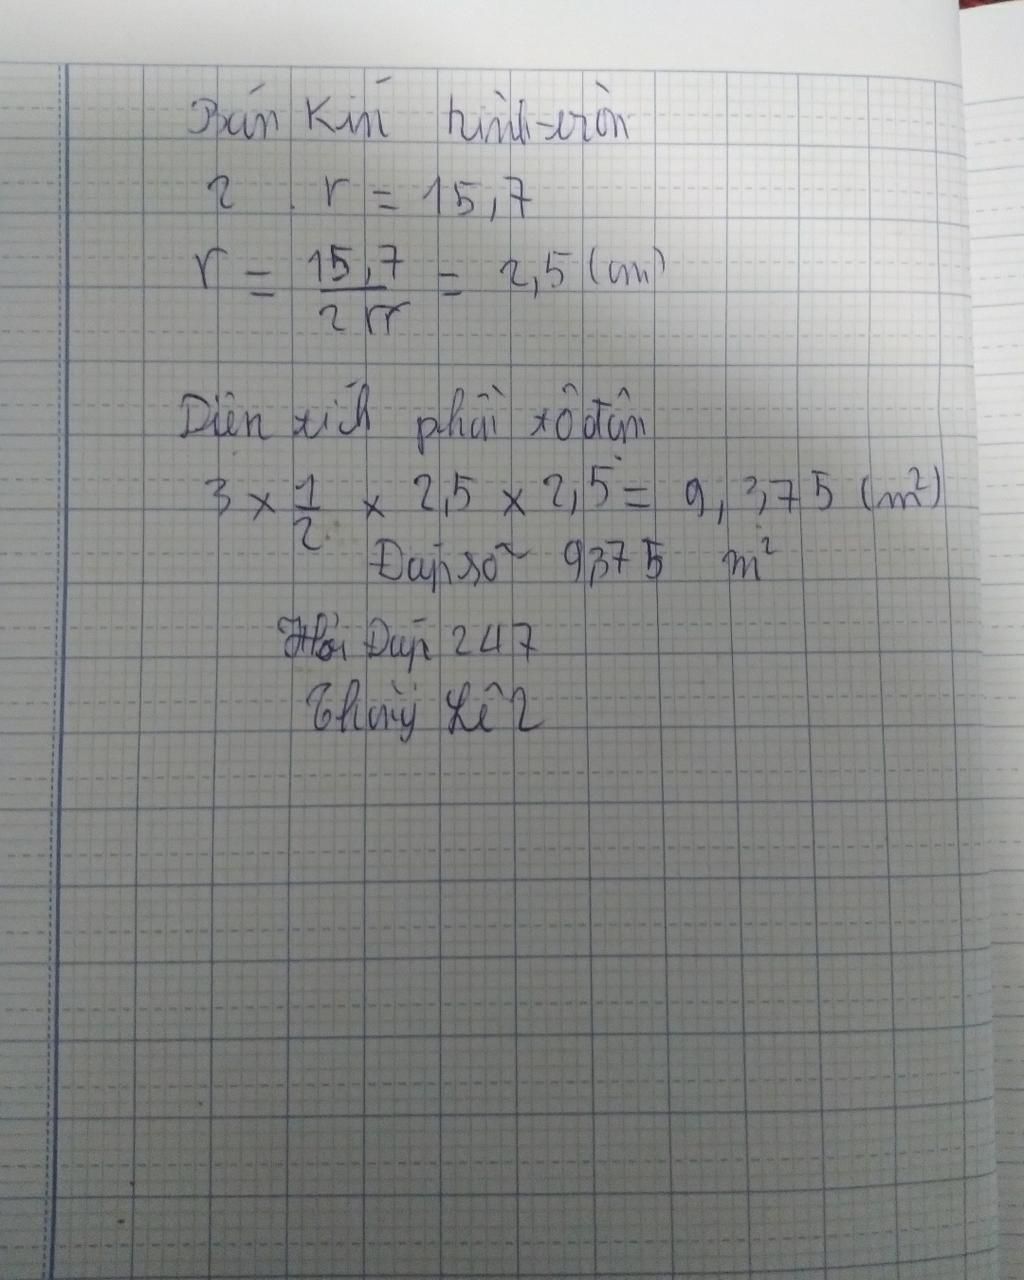 Bán Kín hình tròn
2 . r = 15,7
r = 15,7 / 2π = 2,5 (cm)
Diên tích phần tô đậm
3 × 1/2 × 2,5 × 2,5 = 9,375 (m²)
Đáp số 9375 m²
Hỏi Đáp 247